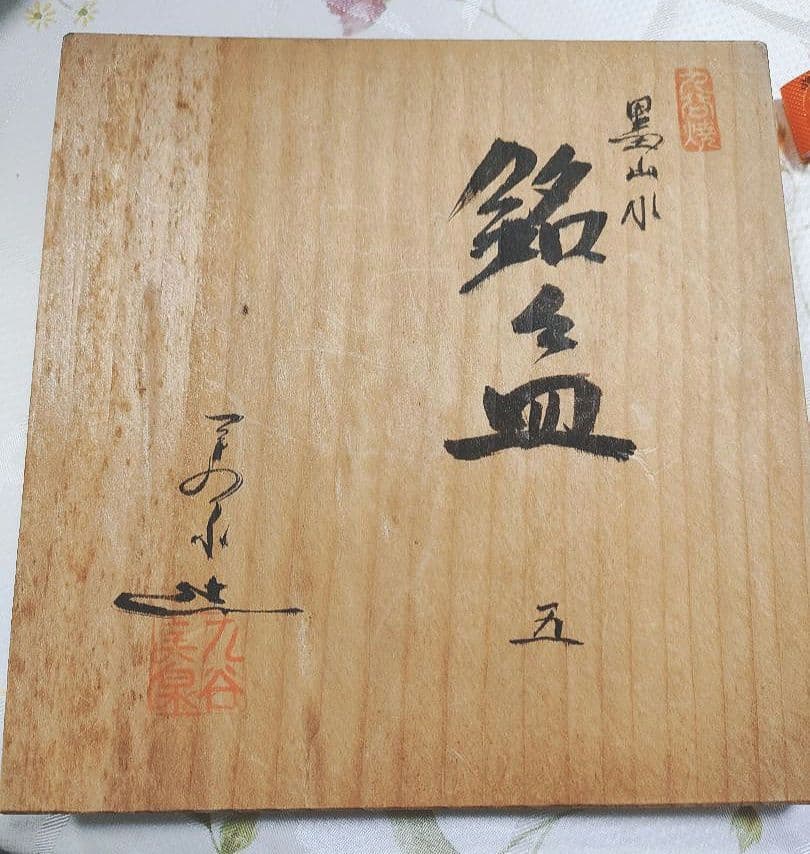 九谷焼
墨山水
銘々皿
五
美泉造
九谷
美泉